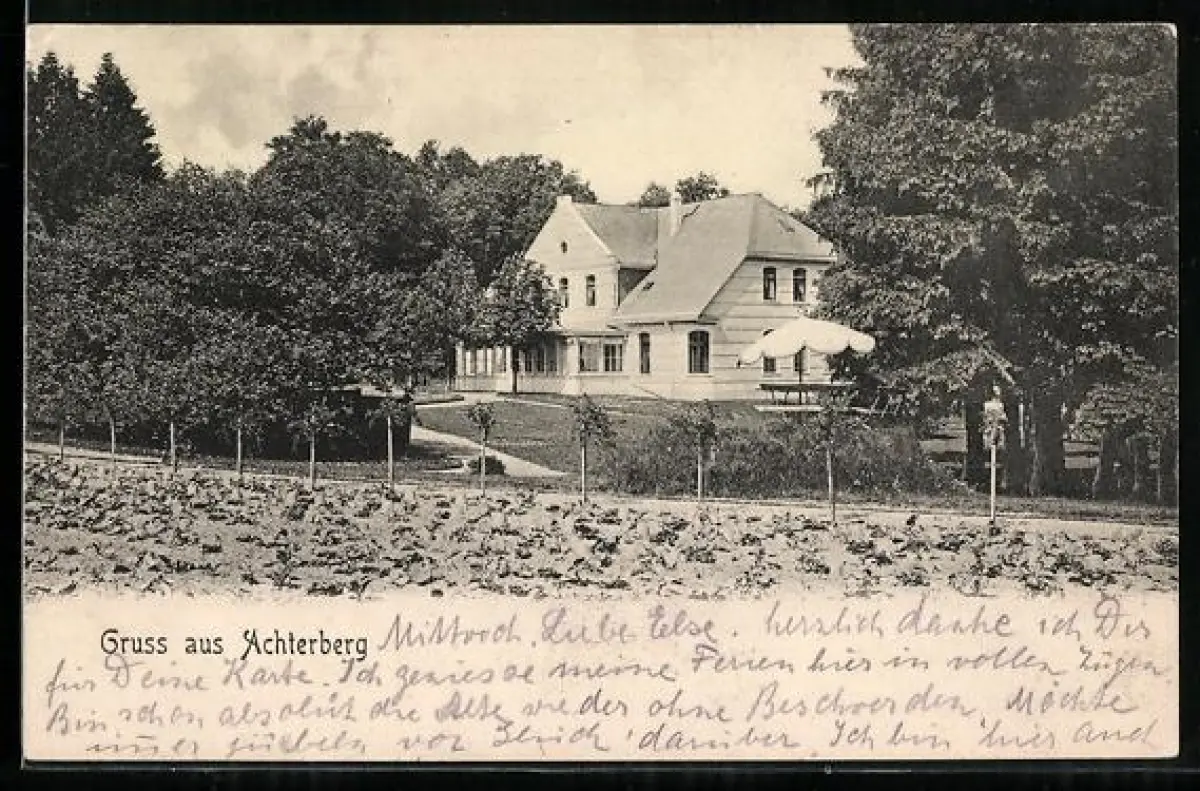 Gruss aus Achterberg Mittwoch. Liebe Else. herzlich danke ich Dir
für Deine Karte. Ich geniesse meine Ferien hier in vollen Zügen.
Bin schon absolut die Alte wieder ohne Beschwerden. Möchte
immer jubeln vor Glück darüber. Ich bin hier auch